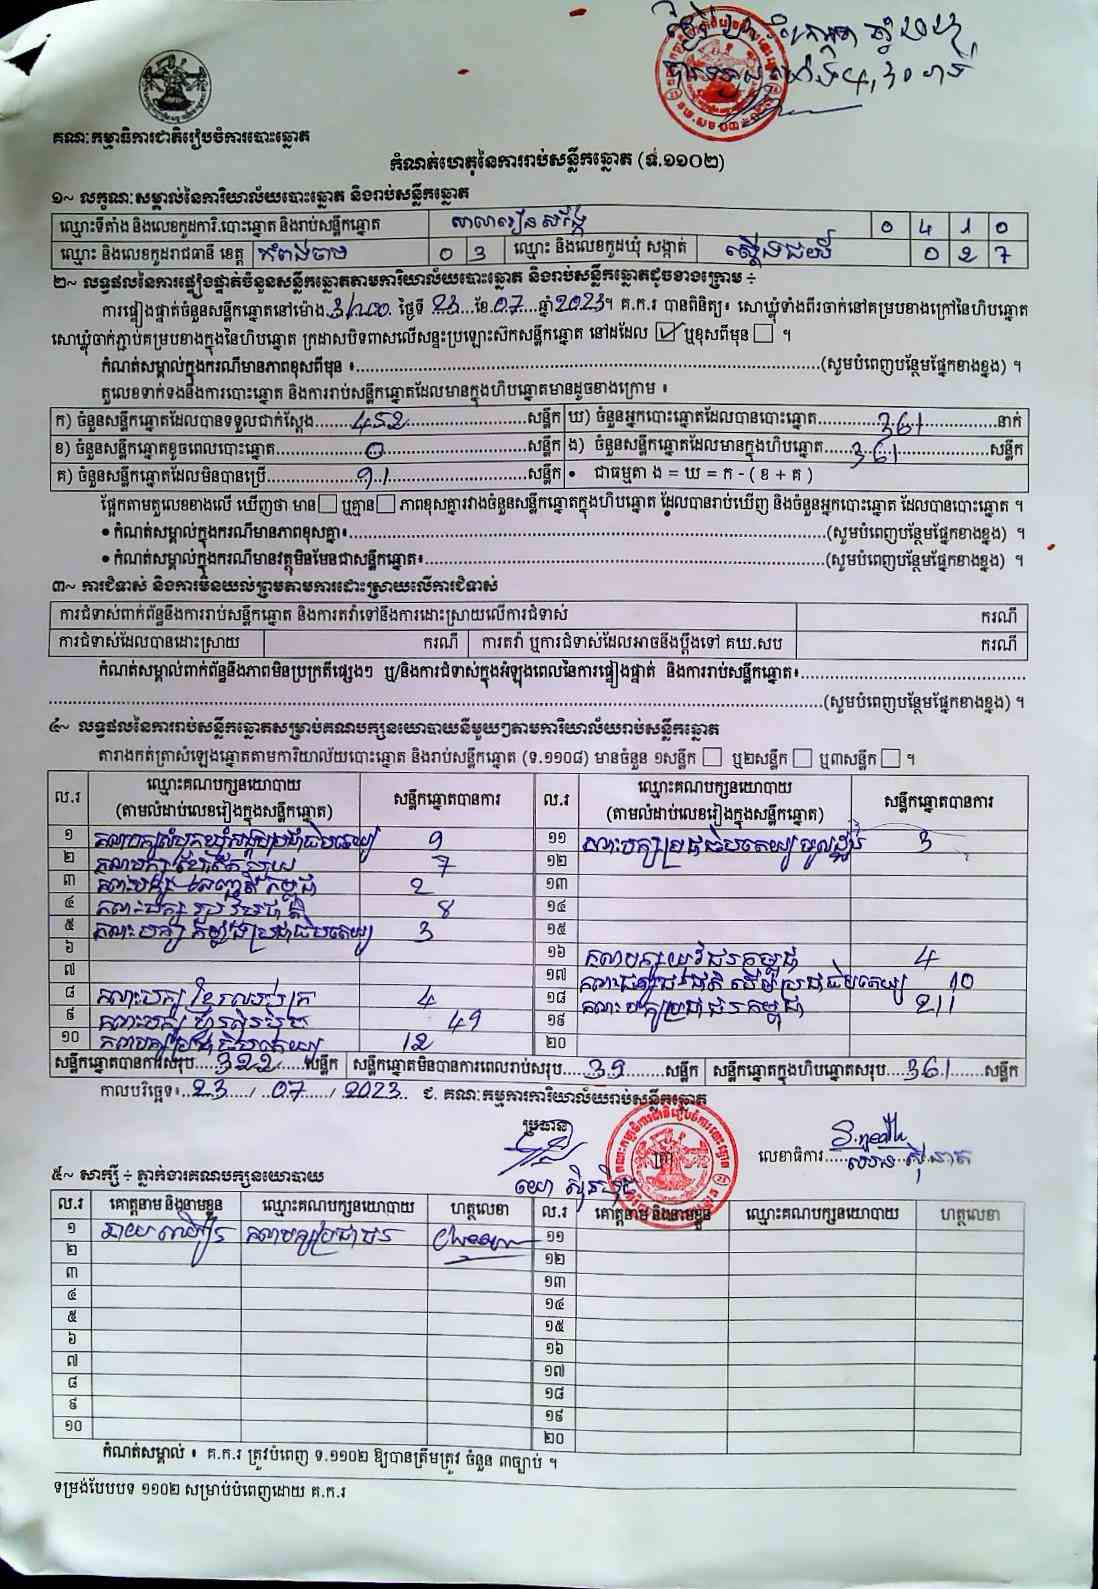 គណៈកម្មាធិការជាតិរៀបចំការបោះឆ្នោត
កំណត់ហេតុនៃការរាប់សន្លឹកឆ្នោត (ទ.១១០២)
១~ លក្ខណៈសម្គាល់នៃការិយាល័យបោះឆ្នោត និងរាប់សន្លឹកឆ្នោត
ឈ្មោះទីតាំង និងលេខកូដការិ.បោះឆ្នោត និងរាប់សន្លឹកឆ្នោត សាលារៀន 0 4 1 0
ឈ្មោះ និងលេខកូដរាជធានី ខេត្ត កំពង់ចាម 0 3 ឈ្មោះ និងលេខកូដឃុំ សង្កាត់ ស្ទឹងជយ័ 0 2 7
២~ លទ្ធផលនៃការផ្ទៀងផ្ទាត់ចំនួនសន្លឹកឆ្នោតតាមការិយាល័យបោះឆ្នោត និងរាប់សន្លឹកឆ្នោតដូចខាងក្រោម ÷
ការផ្ទៀងផ្ទាត់ចំនួនសន្លឹកឆ្នោតនៅម៉ោង 3:00 ថ្ងៃទី 23 ខែ 07 ឆ្នាំ 2023។ គ.ក.រ បានពិនិត្យ៖ សោឃ្លុំទាំងពីរចាក់នៅគម្របខាងក្រៅនៃហិបឆ្នោត
សោឃ្លុំចាក់ភ្ជាប់គម្របខាងក្នុងនៃហិបឆ្នោត ក្រដាសបិទពាសលើសន្ទះប្រឡោះស៊កសន្លឹកឆ្នោត នៅដដែល ☑ ឬខុសពីមុន ☐ ។
កំណត់សម្គាល់ក្នុងករណីមានភាពខុសពីមុន ៖ (សូមបំពេញបន្ថែមផ្នែកខាងខ្នង) ។
តួលេខទាក់ទងនឹងការបោះឆ្នោត និងការរាប់សន្លឹកឆ្នោតដែលមានក្នុងហិបឆ្នោតមានដូចខាងក្រោម ៖
ក) ចំនួនសន្លឹកឆ្នោតដែលបានទទួលជាក់ស្តែង 452 សន្លឹក ឃ) ចំនួនអ្នកបោះឆ្នោតដែលបានបោះឆ្នោត 361 នាក់
ខ) ចំនួនសន្លឹកឆ្នោតខូចពេលបោះឆ្នោត 0 សន្លឹក ង) ចំនួនសន្លឹកឆ្នោតដែលមានក្នុងហិបឆ្នោត 361 សន្លឹក
គ) ចំនួនសន្លឹកឆ្នោតដែលមិនបានប្រើ 91 សន្លឹក • ជាធម្មតា ង = ឃ = ក - ( ខ + គ )
ផ្អែកតាមតួលេខខាងលើ ឃើញថា មាន ☐ ឬគ្មាន ☐ ភាពខុសគ្នារវាងចំនួនសន្លឹកឆ្នោតក្នុងហិបឆ្នោត ដែលបានរាប់ឃើញ និងចំនួនអ្នកបោះឆ្នោត ដែលបានបោះឆ្នោត ។
• កំណត់សម្គាល់ក្នុងករណីមានភាពខុសគ្នា៖ (សូមបំពេញបន្ថែមផ្នែកខាងខ្នង) ។
• កំណត់សម្គាល់ក្នុងករណីមានវត្ថុមិនមែនជាសន្លឹកឆ្នោត៖ (សូមបំពេញបន្ថែមផ្នែកខាងខ្នង) ។
៣~ ការជំទាស់ និងការមិនយល់ព្រមតាមការដោះស្រាយលើការជំទាស់
ការជំទាស់ពាក់ព័ន្ធនឹងការរាប់សន្លឹកឆ្នោត និងការតវ៉ាទៅនឹងការដោះស្រាយលើការជំទាស់ ករណី
ការជំទាស់ដែលបានដោះស្រាយ ករណី ការតវ៉ា ឬការជំទាស់ដែលអាចនឹងប្តឹងទៅ គឃ.សប ករណី
កំណត់សម្គាល់ពាក់ព័ន្ធនឹងភាពមិនប្រក្រតីផ្សេងៗ ឬ/និងការជំទាស់ក្នុងអំឡុងពេលនៃការផ្ទៀងផ្ទាត់ និងការរាប់សន្លឹកឆ្នោត៖
(សូមបំពេញបន្ថែមផ្នែកខាងខ្នង) ។
៤~ លទ្ធផលនៃការរាប់សន្លឹកឆ្នោតសម្រាប់គណបក្សនយោបាយនីមួយៗតាមការិយាល័យរាប់សន្លឹកឆ្នោត
តារាងកត់ត្រាសំឡេងឆ្នោតតាមការិយាល័យបោះឆ្នោត និងរាប់សន្លឹកឆ្នោត (ទ.១១០៨) មានចំនួន ១សន្លឹក ☐ ឬ២សន្លឹក ☐ ឬ៣សន្លឹក ☐ ។
ល.រ ឈ្មោះគណបក្សនយោបាយ (តាមលំដាប់លេខរៀងក្នុងសន្លឹកឆ្នោត) សន្លឹកឆ្នោតបានការ ល.រ ឈ្មោះគណបក្សនយោបាយ (តាមលំដាប់លេខរៀងក្នុងសន្លឹកឆ្នោត) សន្លឹកឆ្នោតបានការ
១ 9 ១១ គណបក្សប្រជាធិបតេយ្យមូលដ្ឋាន 3
២ 7 ១២
៣ 2 ១៣
៤ 8 ១៤
៥ គណបក្ស កម្លាំងប្រជាធិបតេយ្យ 3 ១៥
៦ ១៦ គណបក្សយុវជនកម្ពុជា 4
៧ ១៧ 10
៨ គណបក្ស ខ្មែរ 4 ១៨ គណបក្សប្រជាជនកម្ពុជា 211
៩ គណបក្ស ហ៊្វុនស៊ិនប៉ិច 49 ១៩
១០ 12 ២០
សន្លឹកឆ្នោតបានការសរុប 322 សន្លឹក សន្លឹកឆ្នោតមិនបានការពេលរាប់សរុប 39 សន្លឹក សន្លឹកឆ្នោតក្នុងហិបឆ្នោតសរុប 361 សន្លឹក
កាលបរិច្ឆេទ៖ 23 / 07 / 2023 ជ. គណៈកម្មការការិយាល័យរាប់សន្លឹកឆ្នោត
ប្រធាន
លេខាធិការ
៥~ សាក្សី ÷ ភ្នាក់ងារគណបក្សនយោបាយ
ល.រ គោត្តនាម និងនាមខ្លួន ឈ្មោះគណបក្សនយោបាយ ហត្ថលេខា ល.រ គោត្តនាម និងនាមខ្លួន ឈ្មោះគណបក្សនយោបាយ ហត្ថលេខា
១ គណបក្សប្រជាជន ១១
២ ១២
៣ ១៣
៤ ១៤
៥ ១៥
៦ ១៦
៧ ១៧
៨ ១៨
៩ ១៩
១០ ២០
កំណត់សម្គាល់ ៖ គ.ក.រ ត្រូវបំពេញ ទ.១១០២ ឱ្យបានត្រឹមត្រូវ ចំនួន ៣ច្បាប់ ។
ទម្រង់បែបបទ ១១០២ សម្រាប់បំពេញដោយ គ.ក.រ